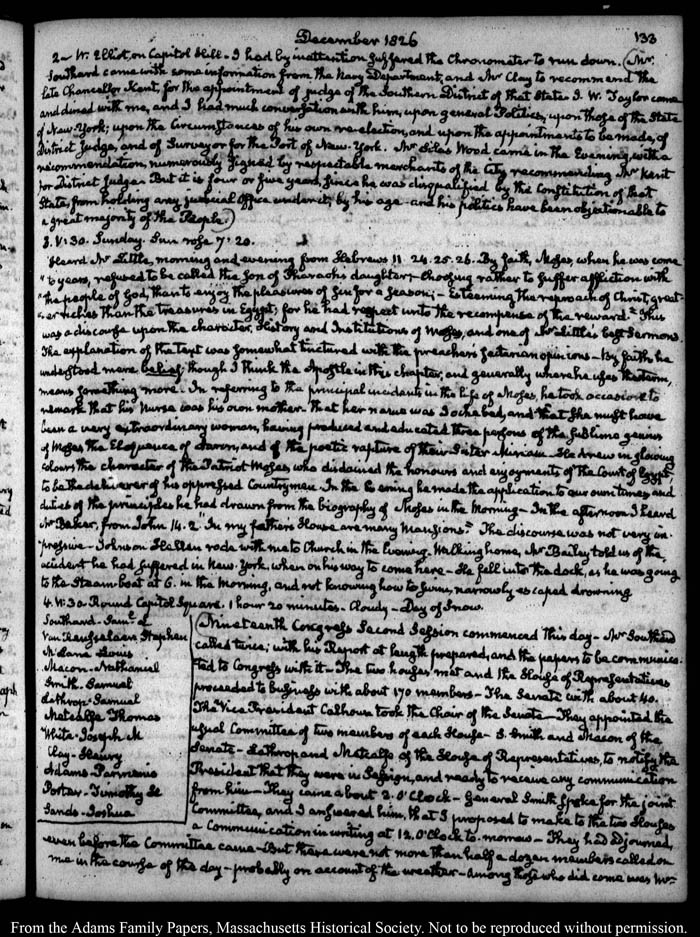 December 1826
133
2 – W. Elliot, on Capitol Hill – I had by inattention suffered the Chronometer to run down. (Mr.
Southard came with some information from the Navy Department, and Mr Clay to recommend the
late Chancellor Kent, for the appointment of judge of the Southern District of that State. J. W. Taylor came
and dined with me, and I had much conversation with him, upon general Politics, upon those of the State
of New-York; upon the Circumstances of his own re-election, and upon the appointments to be made, of
District Judge, and of Surveyor for the Port of New-York. Mr Silas Wood came in the Evening, with a
recommendation, numerously signed by respectable merchants of the City, recommending Mr Kent
for District Judge. But it is four or five years, since he was disqualified by the Constitution of that
State, from holding any judicial Office under it, by his age – and his politics have been objectionable to
a great majority of the People.)
3. V: 30. Sunday. Sun rose 7: 20.
Heard Mr Little, morning and evening from Hebrews 11. 24. 25. 26. By faith, Moses, when he was come
"to years, refused to be called the Son of Pharaoh's daughter; – Choosing rather to suffer affliction with
"the people of God, than to enjoy the pleasures of Sin for a Season; – Esteeming the reproach of Christ, great-
"er riches than the treasures in Egypt; for he had respect unto the recompense of the reward." This
was a discourse upon the character, History and Institutions of Moses, and one of Mr Little's best Sermons.
The explanation of the Text was somewhat tinctured with the preacher's sectarian opinions – By faith, he
understood mere belief; though I think the Apostle in this chapter, and generally where he uses the term,
means something more. In referring to the principal incidents in the life of Moses, he took occasion to
remark that his Nurse was his own mother – that her name was Jochabed, and that She must have
been a very extraordinary woman, having produced and educated three persons of the sublime genius
of Moses, the Eloquence of Aaron, and of the poetic rapture of their Sister Miriam. He drew in glowing
colours the character of the Patriot Moses, who disdained the honours and enjoyments of the Court of Egypt,
to be the deliverer of his oppressed Countrymen. In the Evening he made the application to our own times and
duties of the principles he had drawn from the biography of Moses in the Morning – In the afternoon I heard
Mr Baker, from John 14. 2. "In my father's House are many Mansions." The discourse was not very im-
pressive – Johnson Hellen rode with me to Church in the Evening. Walking home, Mr Bailey told us of the
accident he had suffered in New-York, when on his way to come here – He fell into the dock, as he was going
to the Steam boat at 6. in the Morning, and not knowing how to swim, narrowly escaped drowning
4. V: 30. Round Capitol Square. 1 hour 20 minutes – Cloudy – Day of Snow.
Southard – Saml. L
Van Rensselaer Stephen
McLane Louis
Macon – Nathaniel
Smith – Samuel
Lathrop – Samuel
Metcalfe Thomas
White – Joseph M
Clay – Henry
Adams – Parmenio
Porter – Timothy H
Sands – Joshua
(Nineteenth Congress Second Session commenced this day – Mr Southard
called twice; with his Report at length prepared, and the papers to be communica-
ted to Congress with it – The two houses met and the House of Representatives
proceeded to business with about 170 members – The Senate with about 40.
The Vice President Calhoun took the Chair of the Senate – They appointed the
usual Committee of two members of each House – S. Smith and Macon of the
Senate – Lathrop and Metcalfe of the House of Representatives, to notify the
President that they were in Session, and ready to receive any communication
from him – They came about 2. O'Clock – General Smith spoke for the joint
Committee, and I answered him, that I proposed to make to the two Houses
a Communication in writing at 12. O'Clock to-morrow – They had adjourned,
even before the Committee came – But there were not more than half a dozen members called on
me in the course of the day – probably on account of the weather – Among those who did come was Mr
From the Adams Family Papers, Massachusetts Historical Society. Not to be reproduced without permission.